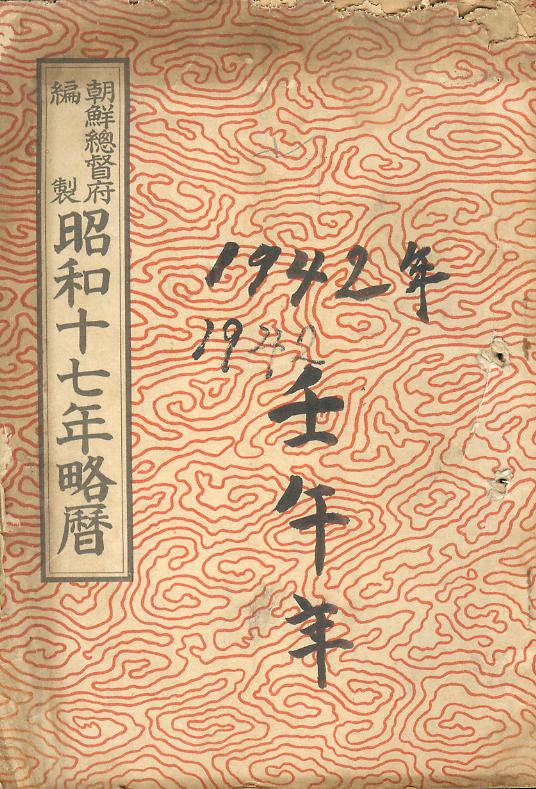 朝鮮總督府
編製
昭和十七年略暦
1942年
1942
壬午年